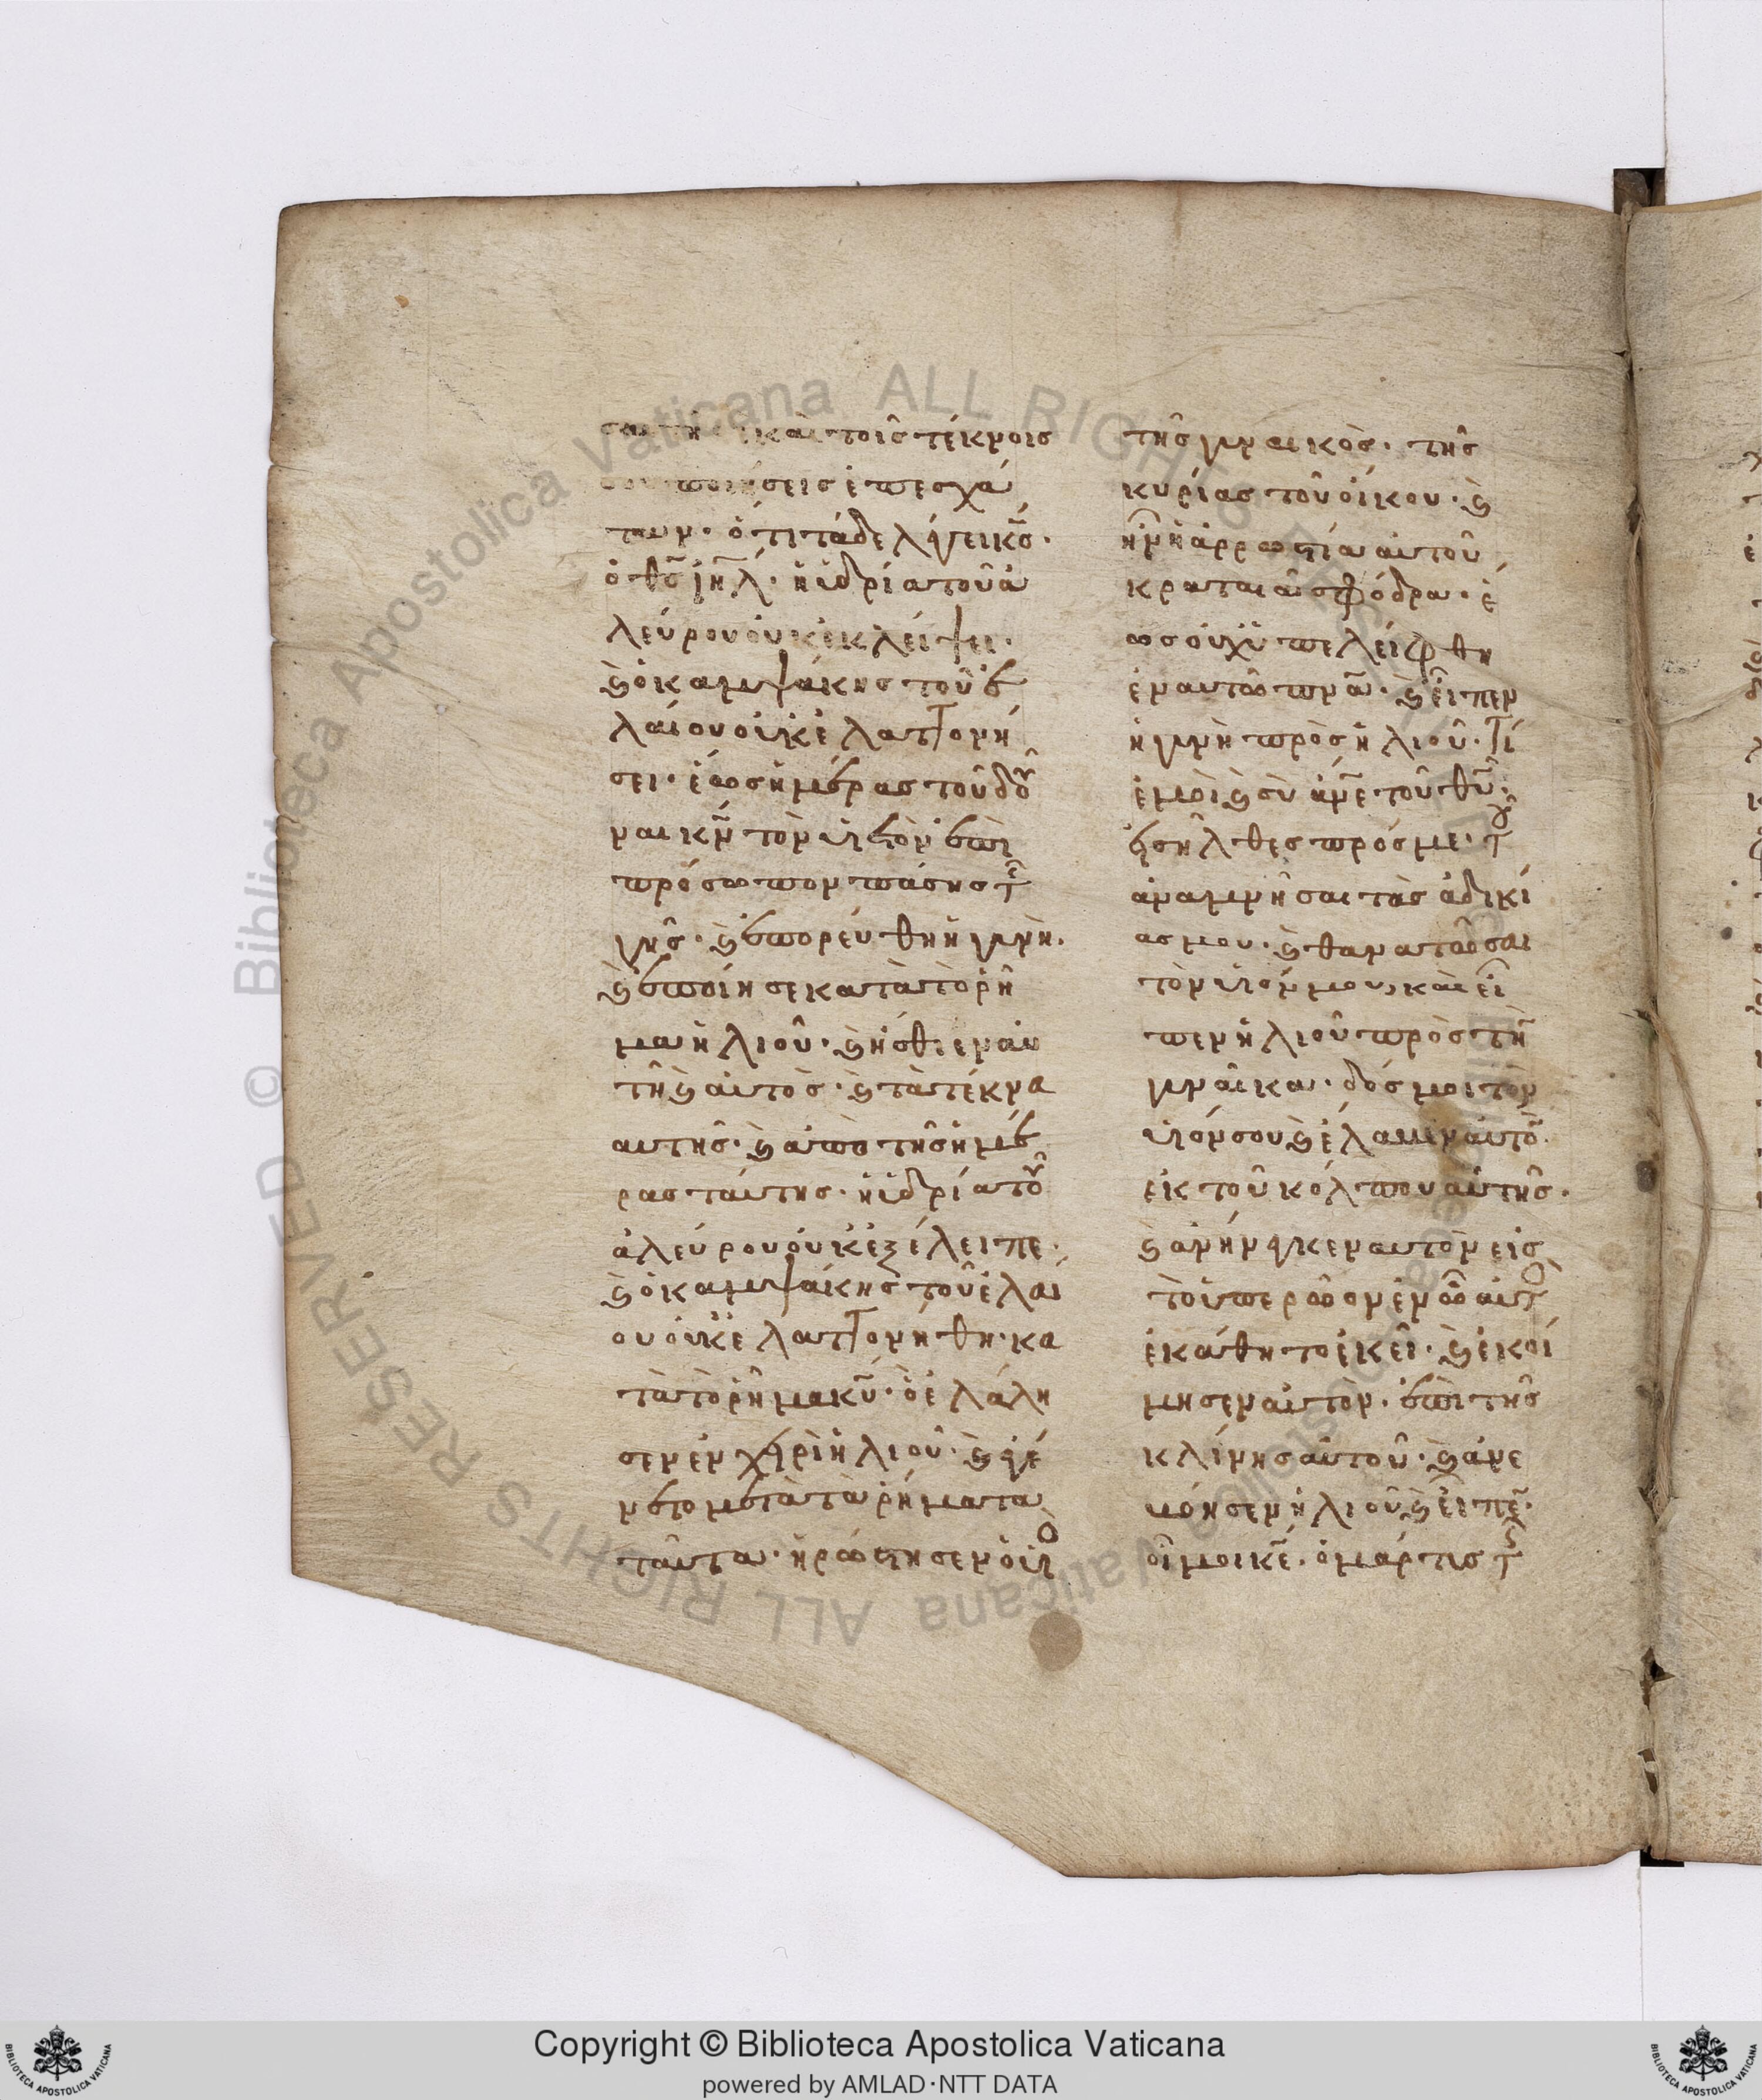 καὶ τοῖς τέκνοις
ποιήσεις ἐπεσχά
των· ὅτι τάδε λέγει κ̅ς̅·
ὁ θ̅ς̅ ι̅η̅λ̅· ἡ ὑδρία τοῦ ἀ
λεύρου οὐκ ἐκλείψει·
ϗ ὁ καμψάκης τοῦ ἐ
λαίου οὐκ ἐλαττονή
σει· ἕως ἡμέρας τοῦ δοῦ
ναι κ̅ν̅ τὸν ὑετὸν ἐπὶ
πρόσωπον πάσης τῆ
γῆς· ϗ ἐπορεύθη ἡ γυνὴ·
ϗ ἐποίησε κατὰ τὸ ῥῆ
μα ἠλιοῦ· ϗ ἤσθιεν αὐ
τὴ ϗ αὐτὸς· ϗ τὰ τέκνα
αὐτῆς· ϗ ἀπὸ τῆς ἡμέ
ρας ταύτης· ἡ ὑδρία τοῦ
ἀλεύρου οὐκ ἐξέλειπε·
ϗ ὁ καμψάκης τοῦ ἐλαί
ου οὐκ ἐλαττονήθη· κα
τὰ τὸ ῥῆμα κ̅υ̅· ὃ ἐλάλη
σεν ἐν χειρὶ ἠλιοῦ· ϗ ἐγέ
νετο μετὰ τὰ ῥήματα
ταῦτα· ἠρώστησεν ὁ υἱὸ
τῆς γυναικὸς· τῆς
κυρίας τοῦ οἴκου· ϗ
ἦν ἡ ἀρρωστία αὐτοῦ
κραταιὰ σφόδρα· ἕ
ως οὐχ ὑπελείφθη
ἐν αὐτῶ π̅ν̅α̅· ϗ εἶπεν
ἡ γυνὴ πρὸς ἠλιοῦ· τί
ἐμοὶ ϗ σὺ ἄν̅ε̅ τοῦ θ̅υ̅·
εἰσῆλθες πρός με· τοῦ
ἀναμνῆσαι τὰς ἀδικί
ας μου· ϗ θανατῶσαι
τὸν υἱόν μου, καὶ εἶ
πεν ἠλιοῦ πρὸς τὴν
γυναῖκα· δός μοι τὸν
υἱόν σου ϗ ἔλαβεν αὐτὸν
ἐκ τοῦ κόλπου αὐτῆς·
ϗ ἀνήνεγκεν αὐτὸν εἰς
τὸ ὑπερῶον ἐν ῶ αὐτὸ
ἐκάθητο ἐκεῖ· ϗ ἐκοί
μησεν αὐτὸν· ἐπὶ τῆς
κλίνης αὐτοῦ· ϗ ἀνε
βόησεν ἠλιοῦ ϗ εἶπε̅·
οἴμοι κ̅ε̅· ὁ μάρτις τῆ